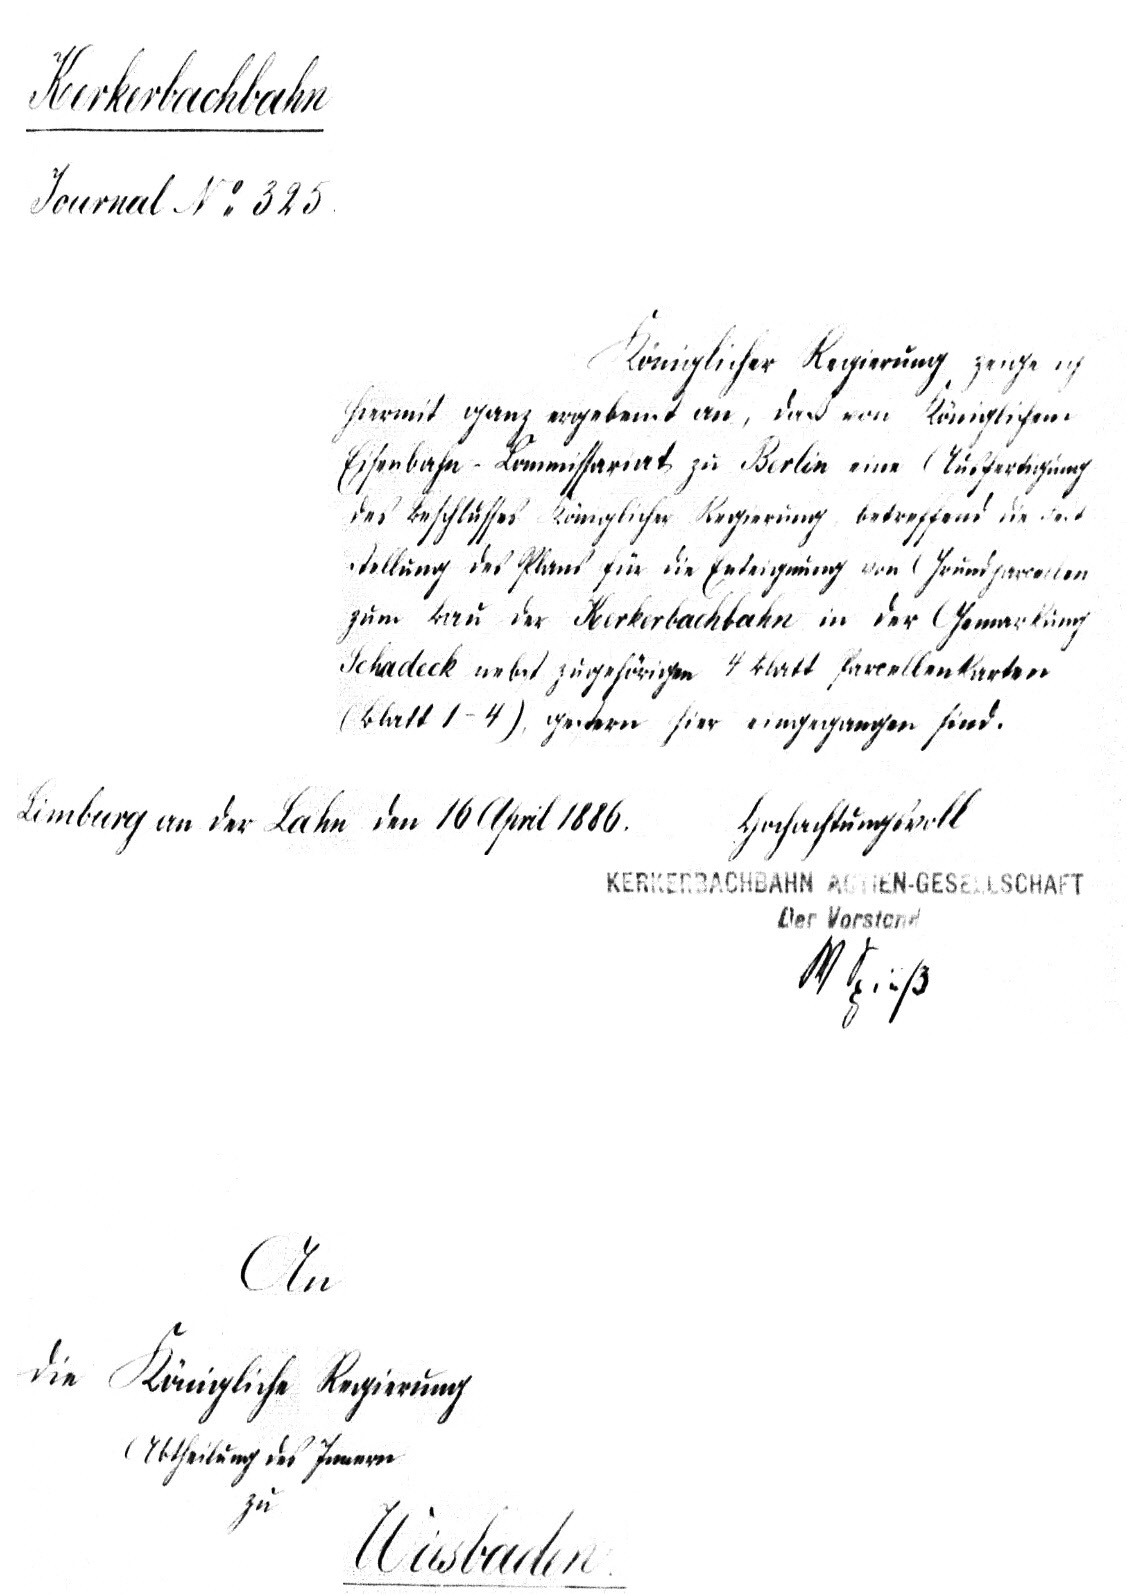 Kerkerbachbahn
Journal No. 325.
Königlicher Regierung zeige ich
hiermit ganz ergebenst an, daß von Königlichem
Eisenbahn-Commissariat zu Berlin eine Ausfertigung
des Beschlusses Königlicher Regierung betreffend die Fest
stellung des Plans für die Enteignung von Grundparcellen
zum Bau der Kerkerbachbahn in der Gemarkung
Schadeck nebst zugehörigen 4 Blatt Parcellenkarten
(Blatt 1-4), gestern hier eingegangen sind.
Limburg an der Lahn den 16 April 1886. Hochachtungsvoll
KERKERBACHBAHN ACTIEN-GESELLSCHAFT
Der Vorstand
W Spieß
An
die Königliche Regierung
Abtheilung des Innern
zu
Wiesbaden.